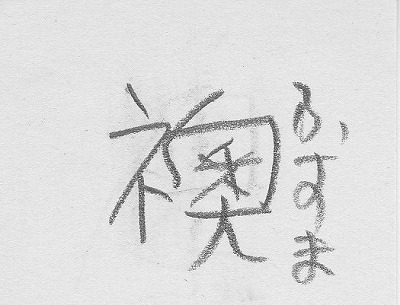 襖
ふすま